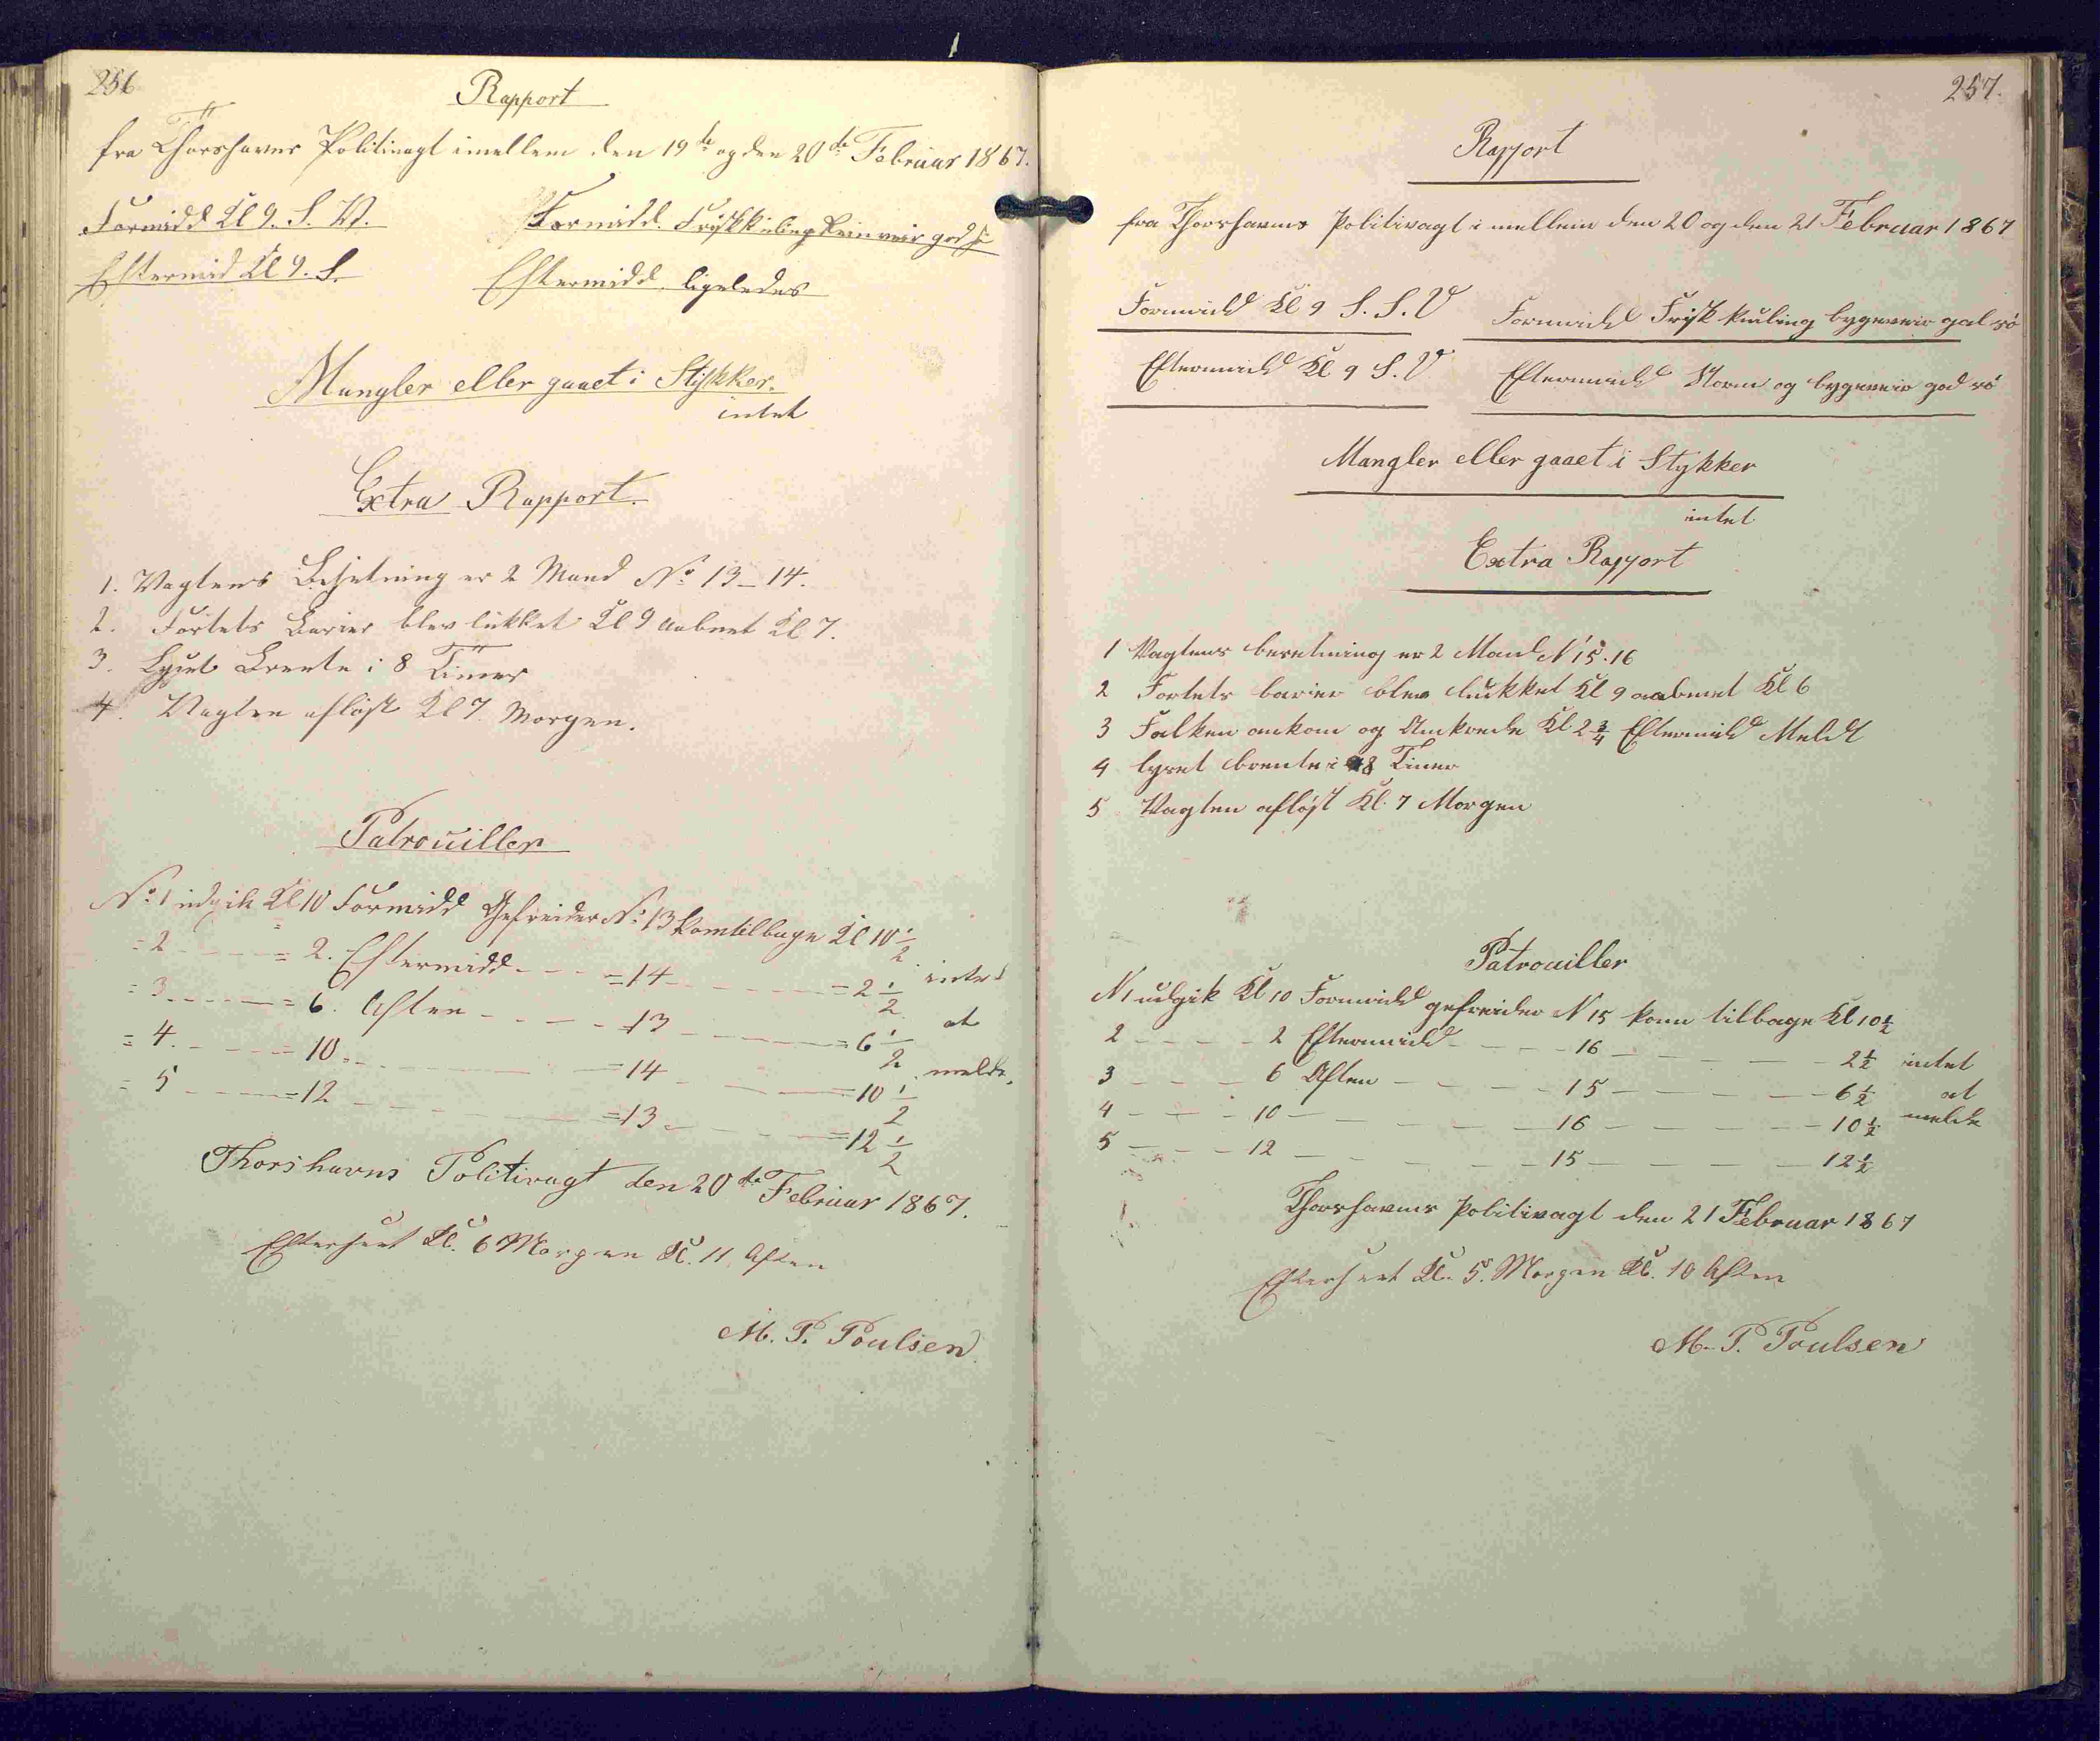 256
Rapport
fra Thorshavns Politivagt imellem den 19de og den 20de Februar 1867.
Formidd Kl 9. S. V. Formidd. Friskkuling Reinveir god sø
Eftermid Kl 9. S. Eftermidd. ligeledes
Mangler eller gaaet i Stykker.
intet
Extra Rapport.
1. Vagtens Besetning er 2 Mand No 13-14.
2. Fortets Barier blev lukket Kl 9 Aabnet Kl 7.
3. Lyset Brente i 8 Timer
4. Vagten afløst Kl 7. Morgen.
Patrouiller
No 1 udgik Kl 10 Formidd Gefreider No 13 kom tilbage Kl 10 1/2
= 2 - - - = 2. Eftermidd - - - =14 - - - =2 1/2 intet
= 3 - - - = 6. Aften - - - - 13 - - - =6 1/2 at
= 4. - - - = 10 - - - =14 - - - =10 1/2 melde.
= 5 - - - =12 - - - =13 - - - =12 1/2
Thorshavns Politivagt den 20de Februar 1867.
Efterseet Kl. 6 Morgen Kl. 11 Aften
M. P. Poulsen
257.
Rapport
fra Thorshavns Politivagt i mellem den 20 og den 21 Februar 1867
Formidd Kl 9 S. S. V Formidd Frisk kuling bygeveir god sö
Eftermidd Kl 9 S. V Eftermidd Storm og bygeveir god sö
Mangler eller gaaet i Stykker
intet
Extra Rapport
1 Vagtens besetning er 2 Mand N 15. 16
2 Fortets barier blev lukket Kl 9 aabnet Kl 6
3 Falken ankom og Ankrede Kl. 2 3/4 Eftermidd Meldt
4 lyset brente i 8 Timer
5 Vagten afløst Kl. 7 Morgen
Patrouiller
N 1 udgik Kl 10 Formidd gefreider N 15 kom tilbage Kl 10 1/2
2 - - - - 2 Eftermidd - - - - 16 - - - - 2 1/2 intet
3 - - - 6 Aften - - - - 15 - - - - 6 1/2 at
4 - - - 10 - - - - 16 - - - - 10 1/2 melde
5 - - - 12 - - - - 15 - - - - 12 1/2
Thorshavns Politivagt den 21 Februar 1867
Efterseet Kl. 5. Morgen Kl. 10 Aften
M. P. Poulsen